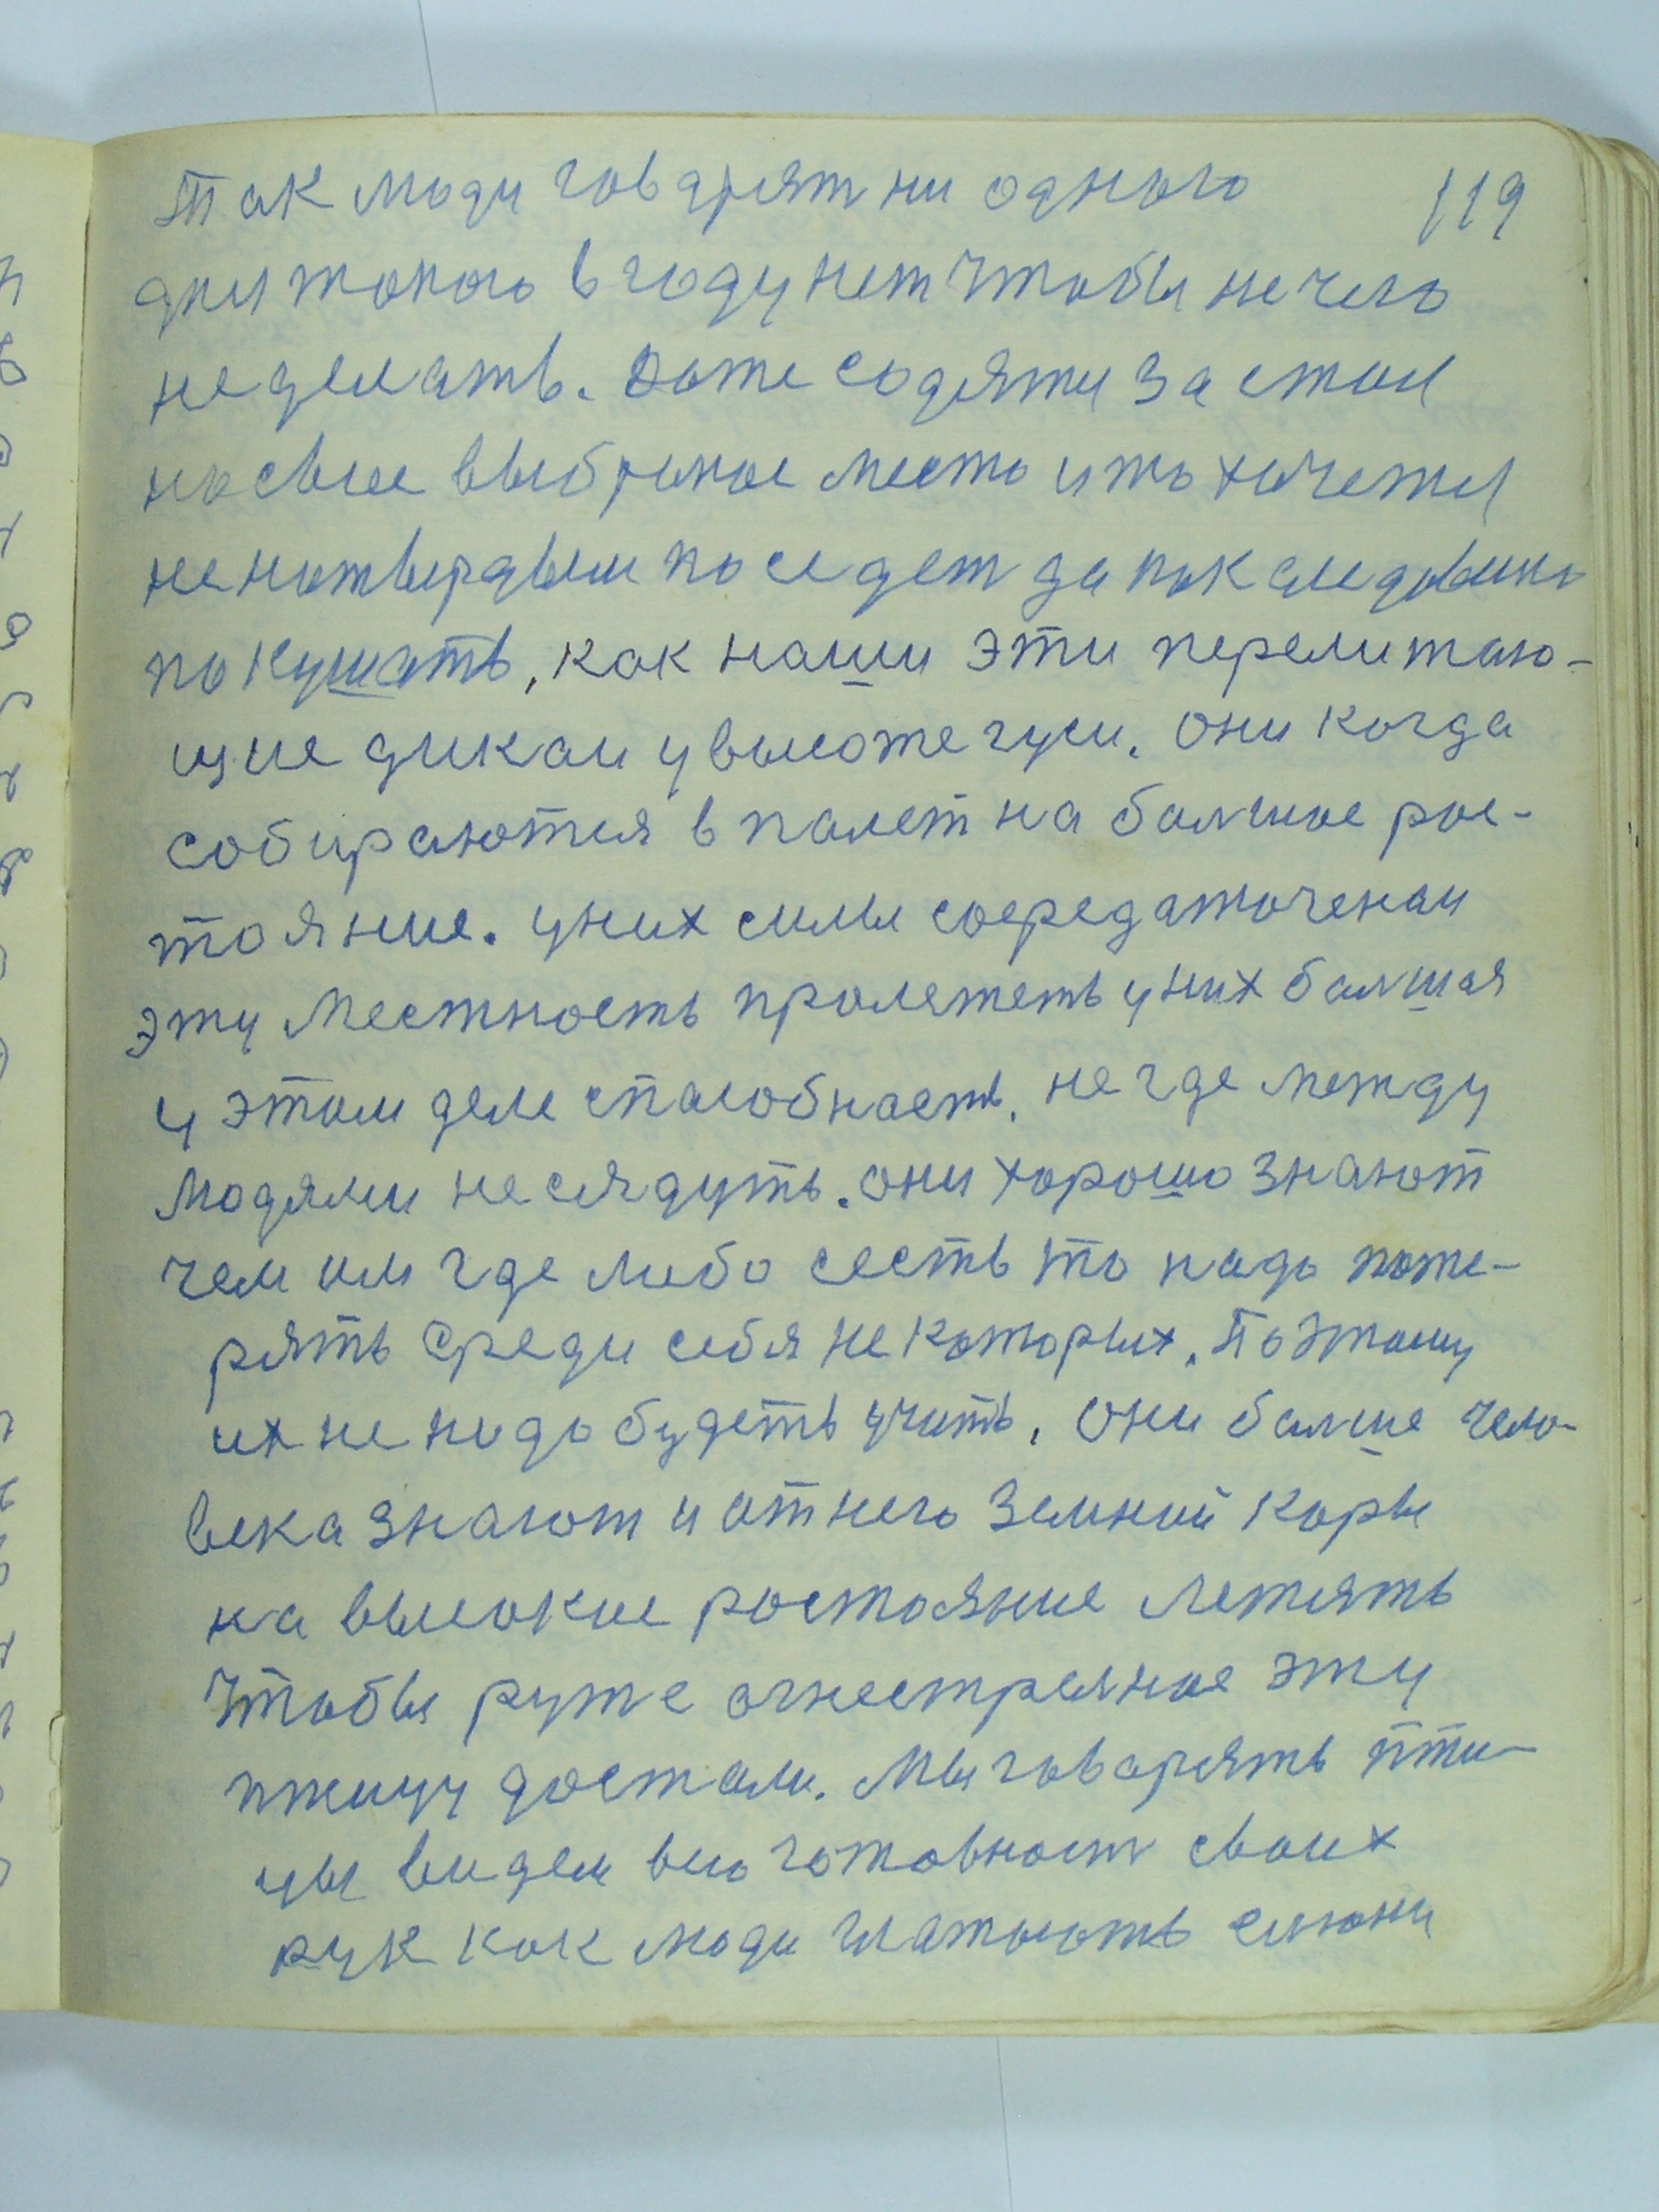 Так люди говорят ни одного 119
дня токого в году нет чтобы не чего
не делать. Доже содятця за стол
на свое выбраное место и то хочетця
не натвердыи поседет да пак следовино
покушать, как наши эти перелитаю-
щие дикаи у высоте гуси. Они когда
собираютися в палет на балшое рос-
тояние. у них силы соередаточенаи
эту местность пролететь у них балшая
у этом деле спасобность. не где между
людями не сядуть. они хорошо знают
чем им где либо сесть то надо поте-
рять среди себя не которых. Поэтому
их не надо будеть учить. Они балше чело-
века знают и от него земной коры
на высокие ростояние летять
чтобы руже огнестрелное эту
птицу достали. Мы говарять пти-
цы видем всю готовност своих
рук как люди глатають слюни